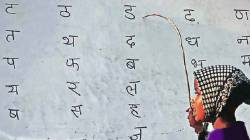 ट ठ ड ढ ण
त थ द ध न
प फ ब भ म
य र ल
ष स ल